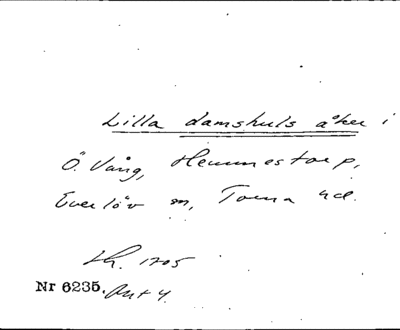 Lilla damshuls åker i
Ö. Vång, Hemmestorp,
Everlöv sn, Torna hd.
Lh. 1705
Nr 6235. Akt 4.